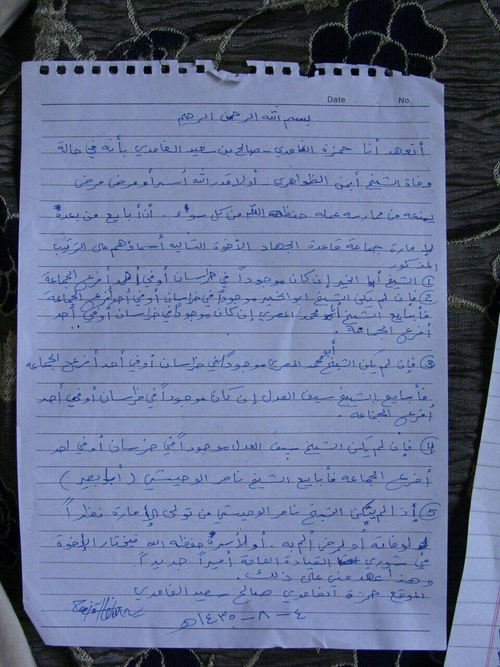 Date No.
بسم الله الرحمن الرحيم
أتعهد أنا حمزة الغامدي - صالح بن سعيد الغامدي بأنه في حالة
وفاة الشيخ أيمن الظواهري - أو لا قدر الله أُسر أو مرض مرض
يمنعه من ممارسة عمله حفظه الله من كل سوء. أن أبايع من بعده
لإمارة جماعة قاعدة الجهاد الأخوة التاليه أسماؤهم على الترتيب
المذكور
① الشيخ أبا الخير إن كان موجوداً في خراسان أو في أحد أفرع الجماعة
② فإن لم يكن الشيخ ابو الخير موجوداً في خراسان أو في أحد أفرع الجماعة
فأبايع الشيخ أبا محمد المصري إن كان موجوداً في خراسان أو في أحد
أفرع الجماعة.
③ فإن لم يكن الشيخ أبو محمد المصري موجوداً في خراسان أو في أحد أفرع الجماعه
فأبايع الشيخ سيف العدل إن كان موجوداً في خراسان أو في أحد
أفرع الجماعه.
④ فإن لم يكن الشيخ سيف العدل موجوداً في خراسان أو في احد
أفرع الجماعه فأبايع الشيخ ناصر الوحيشي (أبا بصير)
⑤ إذا لم يتمكن الشيخ ناصر الوحيشي من تولى الإمارة نظراً
لوفاته أو لمرض ألم به. أو لأسره حفظه الله فيختار الإخوة
في شورى القيادة العامة أميراً جديداً
وهذا عهد مني على ذلك.
الموقع حمزة الغامدي صالح سعيد الغامدي
٤ - ٨ - ١٤٣٥ هـ